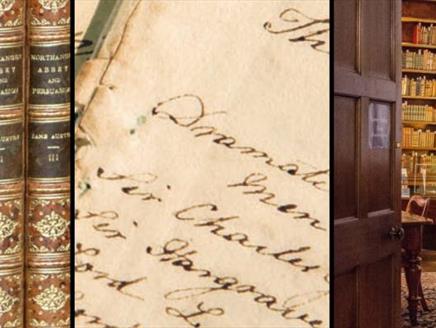 NORTHANGE
ABBEY
AND
PERSUASI
JANE AUSTE
III
Th
Dramati
Men
Sir Charles
Sir Hargrave
Lord L